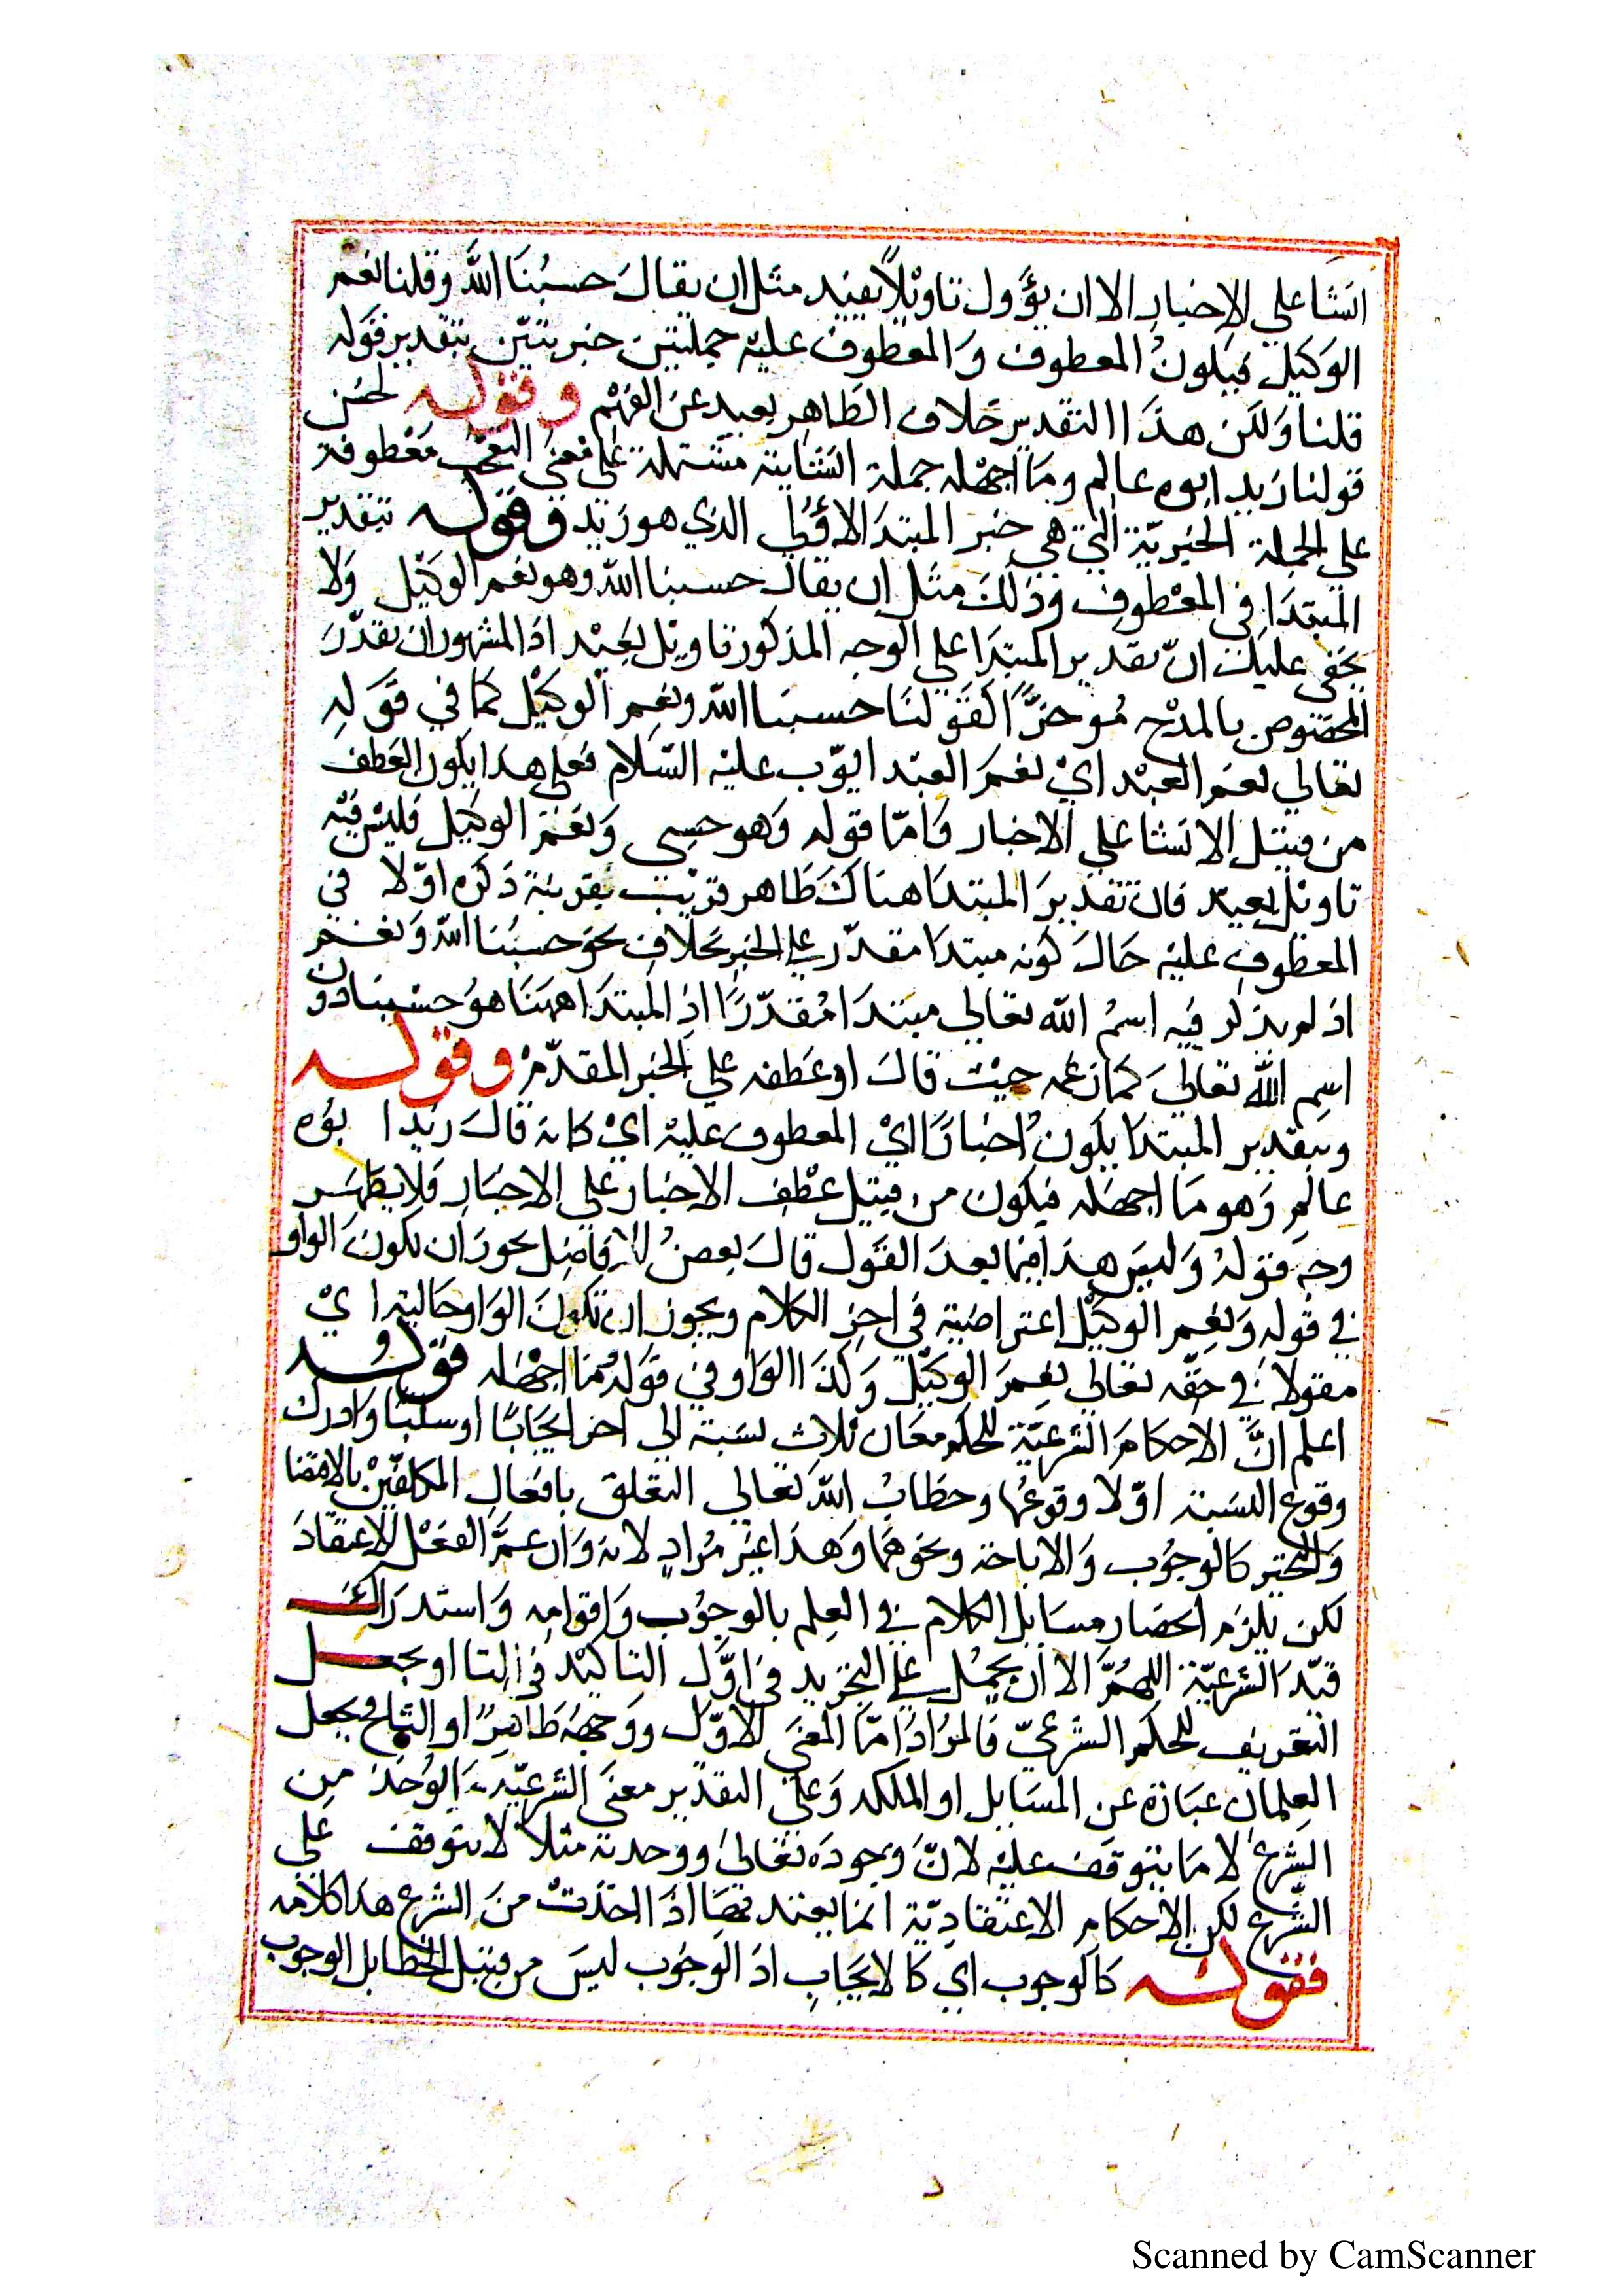 انشا علي الاخبار الا ان يؤول تاويلا بعيد مثل ان يقال حسبنا الله وقلنا نعم
الوكيل فيكون المعطوف والمعطوف عليه جملتين خبريتين بتقدير قوله
قلنا ولكن هذا التقدير خلاف الظاهر بعيد عن الفهم وقوله لحسن
قولنا زيد ابوه عالم وما اجهله جملة انشائية مشتملة على معنى التعجب معطوفة
على الجملة الخبرية التي هي خبر المبتدا الاول الذي هو زيد وقوله بتقدير
المبتدا في المعطوف وذلك مثل ان يقال حسبنا الله وهو نعم الوكيل ولا
يخفى عليك ان تقدير المبتدا على الوجه المذكور تاويل بعيد اذ المشهور ان يقدر
المخصوص بالمدح موخرا كقولنا حسبنا الله ونعم الوكيل كما في قوله
تعالى نعم العبد اي نعم العبد ايوب عليه السلام فعلى هذا يكون العطف
من قبيل الانشا على الاخبار واما قوله وهو حسبي ونعم الوكيل فليس فيه
تاويل بعيد فان تقدير المبتدا هناك ظاهر قريب بقرينة ذكره اولا في
المعطوف عليه حال كونه مبتدا مقدر على الخبر بخلاف نحو حسبنا الله ونعم
اذ لم يذكر فيه اسم الله تعالى مبتدا مقدرا اذ المبتدا ههنا هو حسبنا دون
اسم الله تعالى كما زعمه حيث قال او عطفه على الخبر المقدم وقوله
وبتقدير المبتدا يكون اخبارا اي المعطوف عليه اي كانه قال زيد ا بوه
عالم وهو ما اجهله فيكون من قبيل عطف الاخبار على الاخبار فلا يظهر
وجه قوله وليس هذا فيما بعد القول قال بعض الافاضل يجوز ان تكون الواو
في قوله ونعم الوكيل اعتراضية في اخر الكلام ويجوز ان تكون الواو حالية اي
مقولا في حقه تعالى نعم الوكيل وكذا الواو في قوله وما اجهله قوله
اعلم ان الاحكام الشرعية للحكم معان ثلاث نسبة الي اخر ايجابا او سلبا وادرك
وقوع النسبة اولا وقوعها وخطاب الله تعالى المتعلق بافعال المكلفين بالاقتضا
والتخير كالوجوب والاباحة ونحوهما وهذا غير مراد لانه وان عم الفعل للاعتقاد
لكن يلزم انحصار مسايل الكلام في العلم بالوجوب واقوامه واستدراك
قيد الشرعية اللهم الا ان يحمل على التجريد في اول التاكيد في التا او يجعل
التعريف للحكم الشرعي فالمراد اما المعنى الاول ووجهه ظاهر او الثاني فيجعل
العلمان عبارة عن المسايل او الملكه وعلى التقدير معنى الشرعية الوخذ من
الشرع لا ما يتوقف عليه لان وجوده تعالى ووحدته مثلا لا يتوقف على
الشرع لكن الاحكام الاعتقادية انما يعتد بها اذا اخذت من الشرع هذا كلامه
فقوله كالوجوب اي كالايجاب اذ الوجوب ليس من قبيل الخطاب بل الوجوب
Scanned by CamScanner